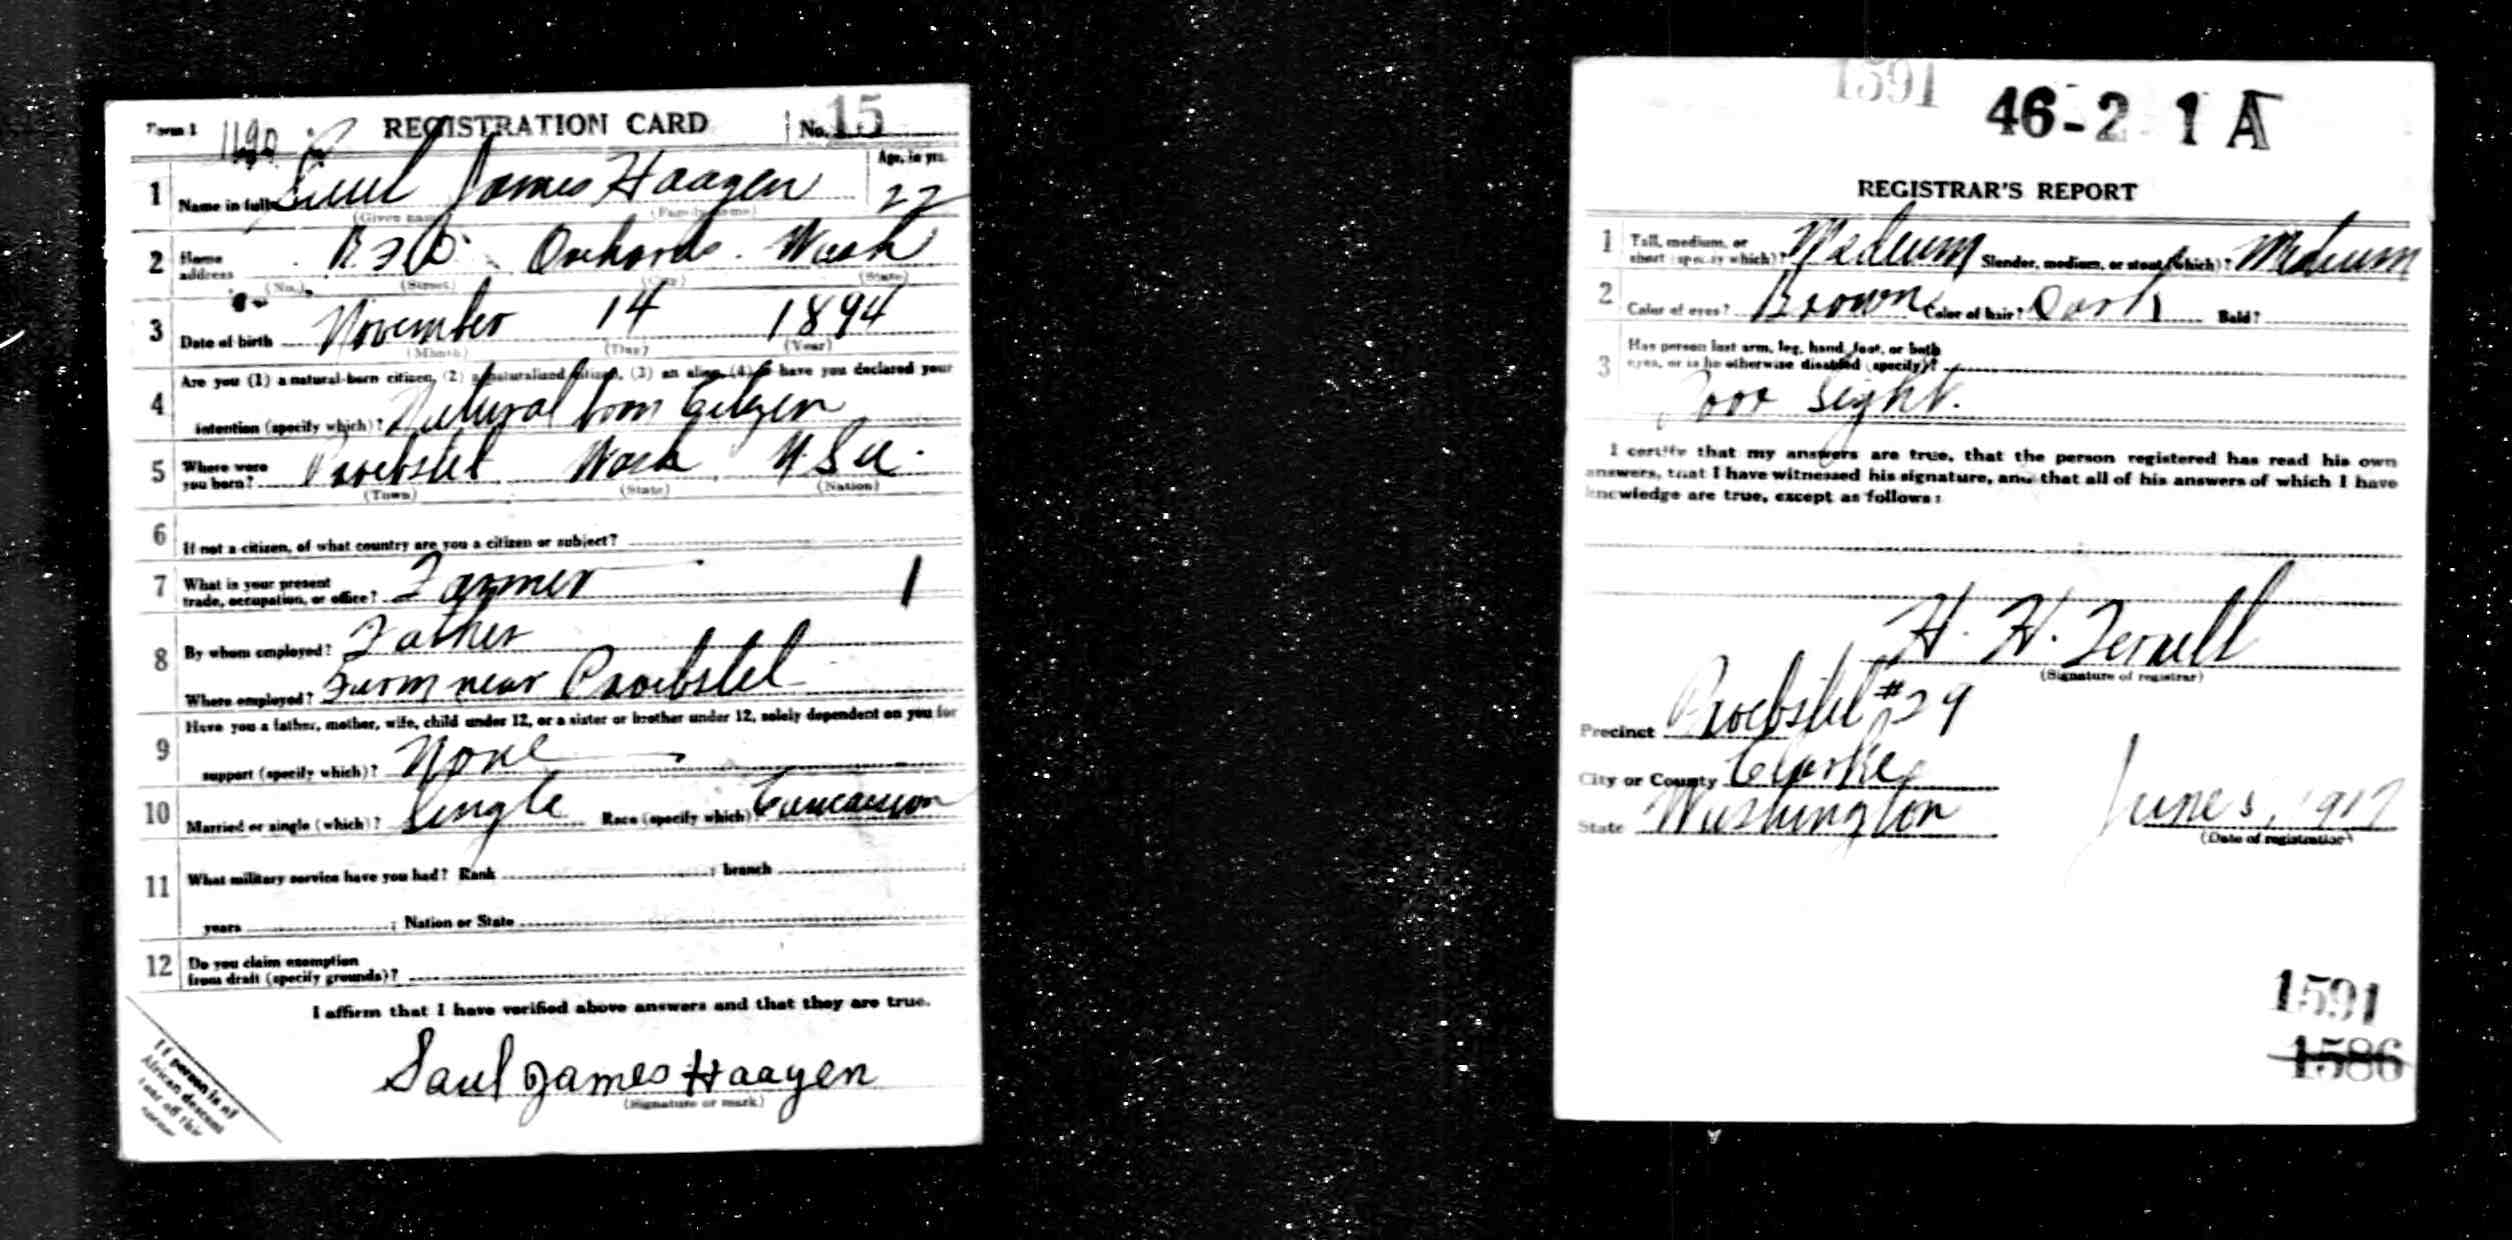 Form 1 1190 REGISTRATION CARD No. 15
Age, in yrs.
1 Name in full Saul James Haagen 22
(Given name) (Family name)
2 Home address R F D Orchards Wash
(No.) (Street) (City) (State)
3 Date of birth November 14 1894
(Month) (Day) (Year)
4 Are you (1) a natural-born citizen, (2) a naturalized citizen, (3) an alien, (4) or have you declared your
intention (specify which)? Natural born Citizen
5 Where were you born? Proebstel Wash U.S.a.
(Town) (State) (Nation)
6 If not a citizen, of what country are you a citizen or subject?
7 What is your present
trade, occupation, or office? Farmer 1
8 By whom employed? Father
Where employed? Farm near Proebstel
9 Have you a father, mother, wife, child under 12, or a sister or brother under 12, solely dependent on you for
support (specify which)? None
10 Married or single (which)? Single Race (specify which) Caucasion
11 What military service have you had? Rank ; branch
years ; Nation or State
12 Do you claim exemption
from draft (specify grounds)?
I affirm that I have verified above answers and that they are true.
Saul James Haagen
(Signature or mark)
If person is of
African descent
tear off this
corner
1591 46-2 1 A
REGISTRAR'S REPORT
1 Tall, medium, or
short (specify which)? Medium Slender, medium, or stout (which)? Medium
2 Color of eyes? Brown Color of hair? Dark Bald?
3 Has person lost arm, leg, hand, foot, or both
eyes, or is he otherwise disabled (specify)?
Poor Sight.
I certify that my answers are true, that the person registered has read his own
answers, that I have witnessed his signature, and that all of his answers of which I have
knowledge are true, except as follows:
H. H. Terrell
(Signature of registrar)
Precinct Proebstel #29
City or County Clarke
State Washington June 5, 1917
(Date of registration)
1591
1586